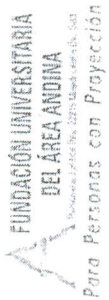 FUNDACIÓN UNIVERSITARIA
DEL ÁREA ANDINA
Para Personas con Proyección